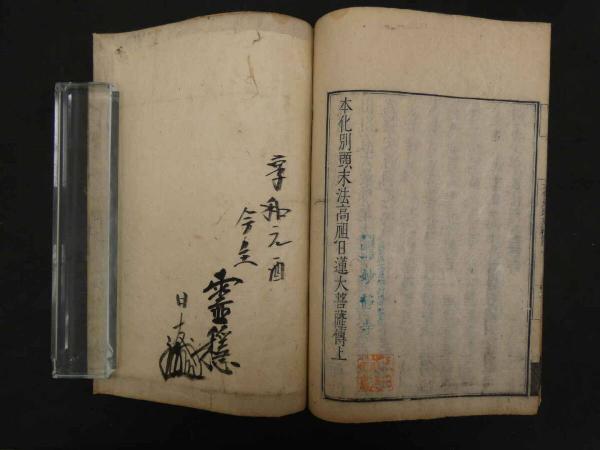 本化別頭末法高祖日蓮大菩薩傳上
享和元酉
今主
靈穩
日